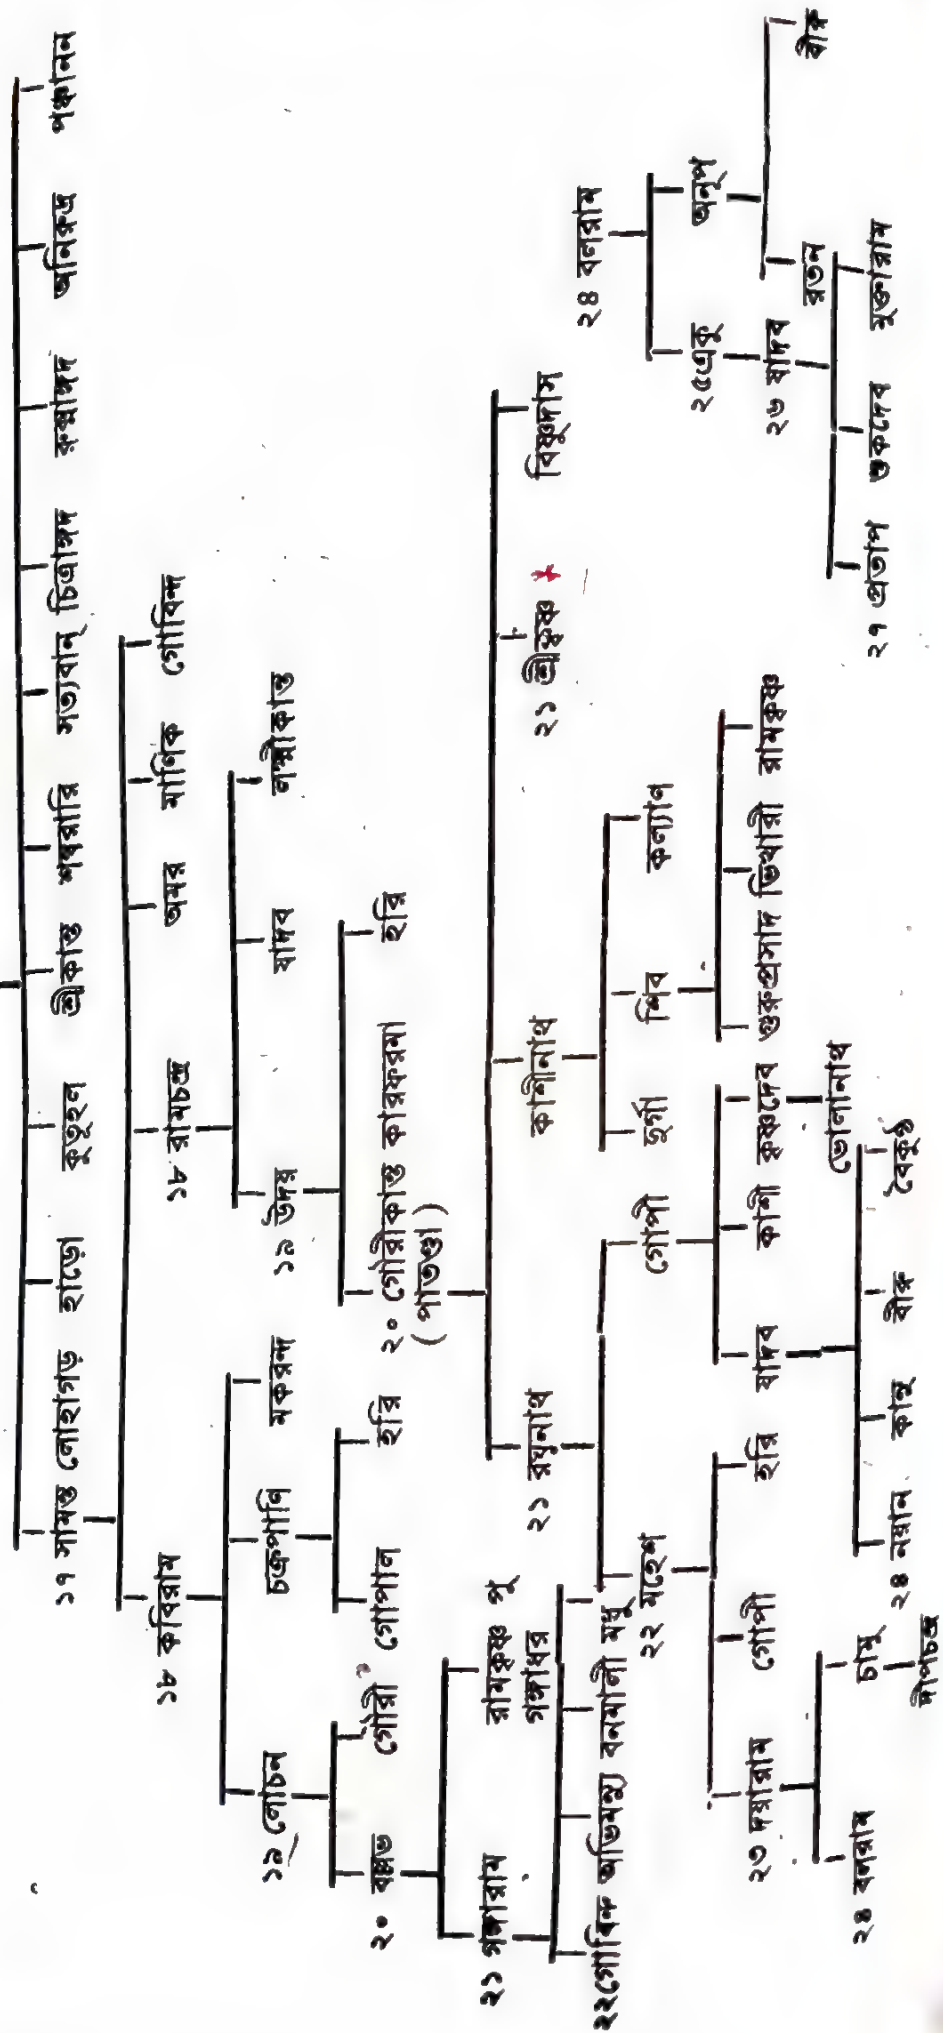 ১৭ সামন্ত লোহাগড় হাড়ো কুতূহল শ্রীকান্ত শম্বরারি সত্যবান্ চিত্রাঙ্গদ রুক্মাঙ্গদ অনিরুদ্ধ পঞ্চানন
১৮ কবিরাম ১৮ রামচন্দ্র অমর মাণিক গোবিন্দ
১৯ লোচন চক্রপাণি মকরন্দ ১৯ উদয় যাদব লক্ষ্মীকান্ত
২০ বল্লভ গৌরী গোপাল হরি ২০ গৌরীকান্ত কারফরমা হরি
( পাতণ্ডা )
২১ গঙ্গারাম রামকৃষ্ণ পু ২১ রঘুনাথ কাশীনাথ ২১ শ্রীকৃষ্ণ বিষ্ণুদাস
গঙ্গাধর
২২ গোবিন্দ অভিমন্যু বনমালী মধু
২২ মহেশ গোপী দুর্গা শিব কল্যাণ
২৩ দয়ারাম গোপী হরি যাদব কাশী কৃষ্ণদেব গুরুপ্রসাদ ভিখারী রামকৃষ্ণ
ভোলানাথ
২৪ বলরাম চামু ২৪ নয়ান কানু বীরু বৈকুণ্ঠ
দীপচন্দ্র
২৪ বলরাম
২৫ একু অনুপ
২৬ যাদব রতন বীরু
২৭ প্রতাপ শুকদেব মুক্তারাম